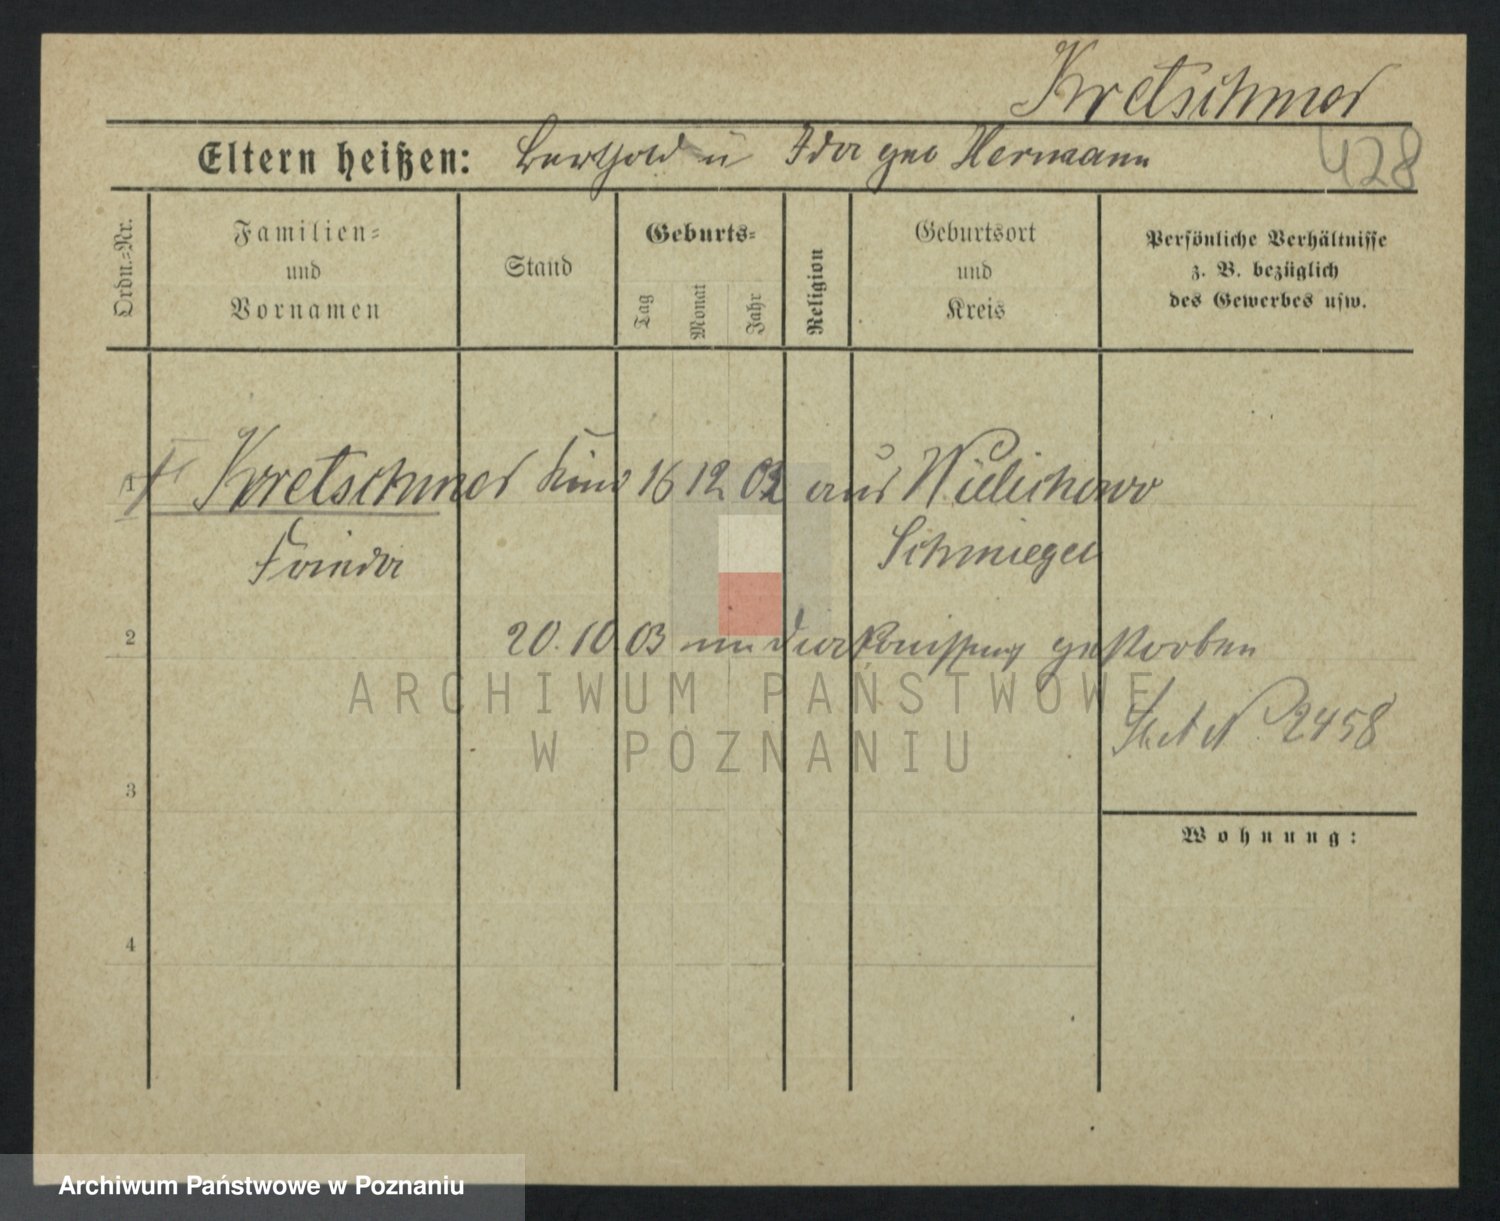 Kretschmer
Eltern heißen: Berthold u Ida geb Hermann
428
Ordn.-Nr.
Familien-
und
Vornamen
Stand
Geburts-
Tag
Monat
Jahr
Religion
Geburtsort
und
Kreis
Persönliche Verhältnisse
z. B. bezüglich
des Gewerbes usw.
1 Kretschmer Kind 16 12 02 aus Wielichowo
Frieda Schmiegel
2 20. 10. 03 im gestorben
ARCHIWUM PAŃSTWOWE
W POZNANIU
2458
3
Wohnung:
4
Archiwum Państwowe w Poznaniu